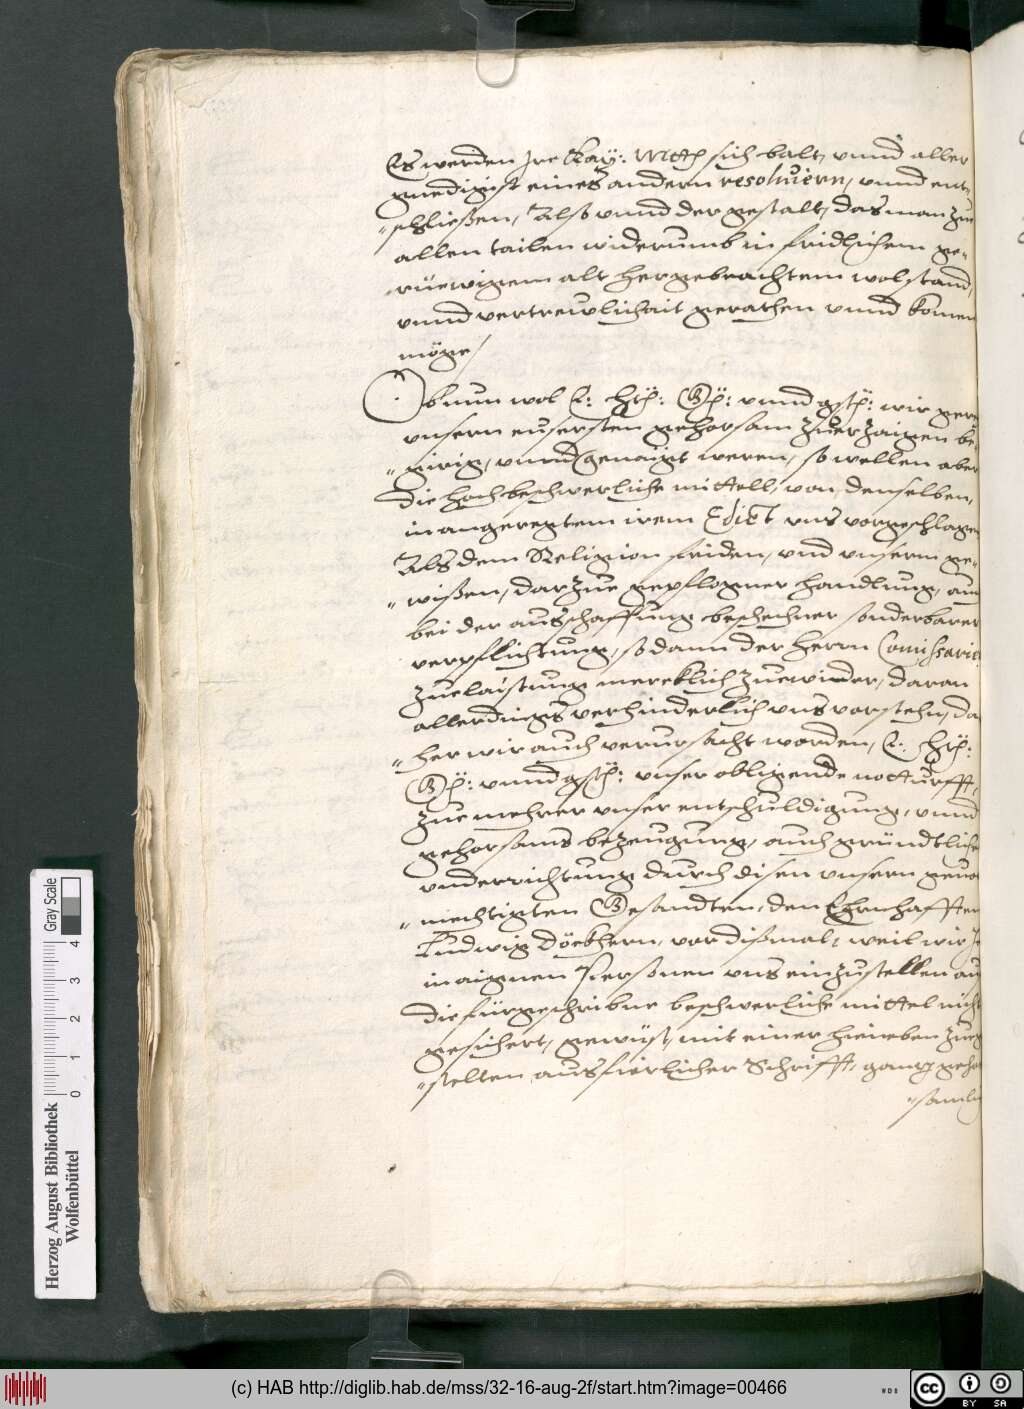 Es werden Ire Kay: Mtt: sich balt, vnnd aller
gnedigist eines andern resoluiern, vnnd ent-
"schließen, Also vnnd der gestalt, das man zue
allen tailen widerumb in fridlichem ge-
rüewigem alt hergebrachtem wolstand,
vnnd vertrewlichait gerathen vnnd komen
möge/
Ob nun wol E: Gn: vnnd wir gern
vnsern eusersten gehorsam zuerzaigen be-
"girig, vnnd genaigt weren, so wellen aber
die hochbeschwerliche mittell, von denselben,
in angeregtem irem Edict vns vorgeschlagen
Als dem Religion friden, vnd vnserm ge-
"wißen, darzue gepflogner handlung, auch
bei der ausschaffung beschehner sonderbarer
verpflichtung, so dann der herrn Comissarien
zuelaistung mercklich zuewider, daran
allerdings verhinderlich vns vorstehn, da
"her wir auch verursacht worden, E:
Gn: vnnd vnser obligende notturfft,
zue mehrer vnser entschuldigung, vnnd
gehorsams bezeugung, auch gründtliche
vnderrichtung durch disen vnsern geuol
"mechtigten Gesandten, den Ehrnhafften
Ludwig Döckhern, vor dißmal, weil wir
in aignen Personen vns einzustellen auf
die fürgeschribne beschwerliche mittel nicht
gesichert, gewüst, mit einer hieneben zueg
"stelten ausfierlicher Schrifft, ganz gehor
"samlich
Herzog August Bibliothek
Wolfenbüttel
0 1 2 3 4
Gray Scale
(c) HAB http://diglib.hab.de/mss/32-16-aug-2f/start.htm?image=00466
WDB
cc
BY SA